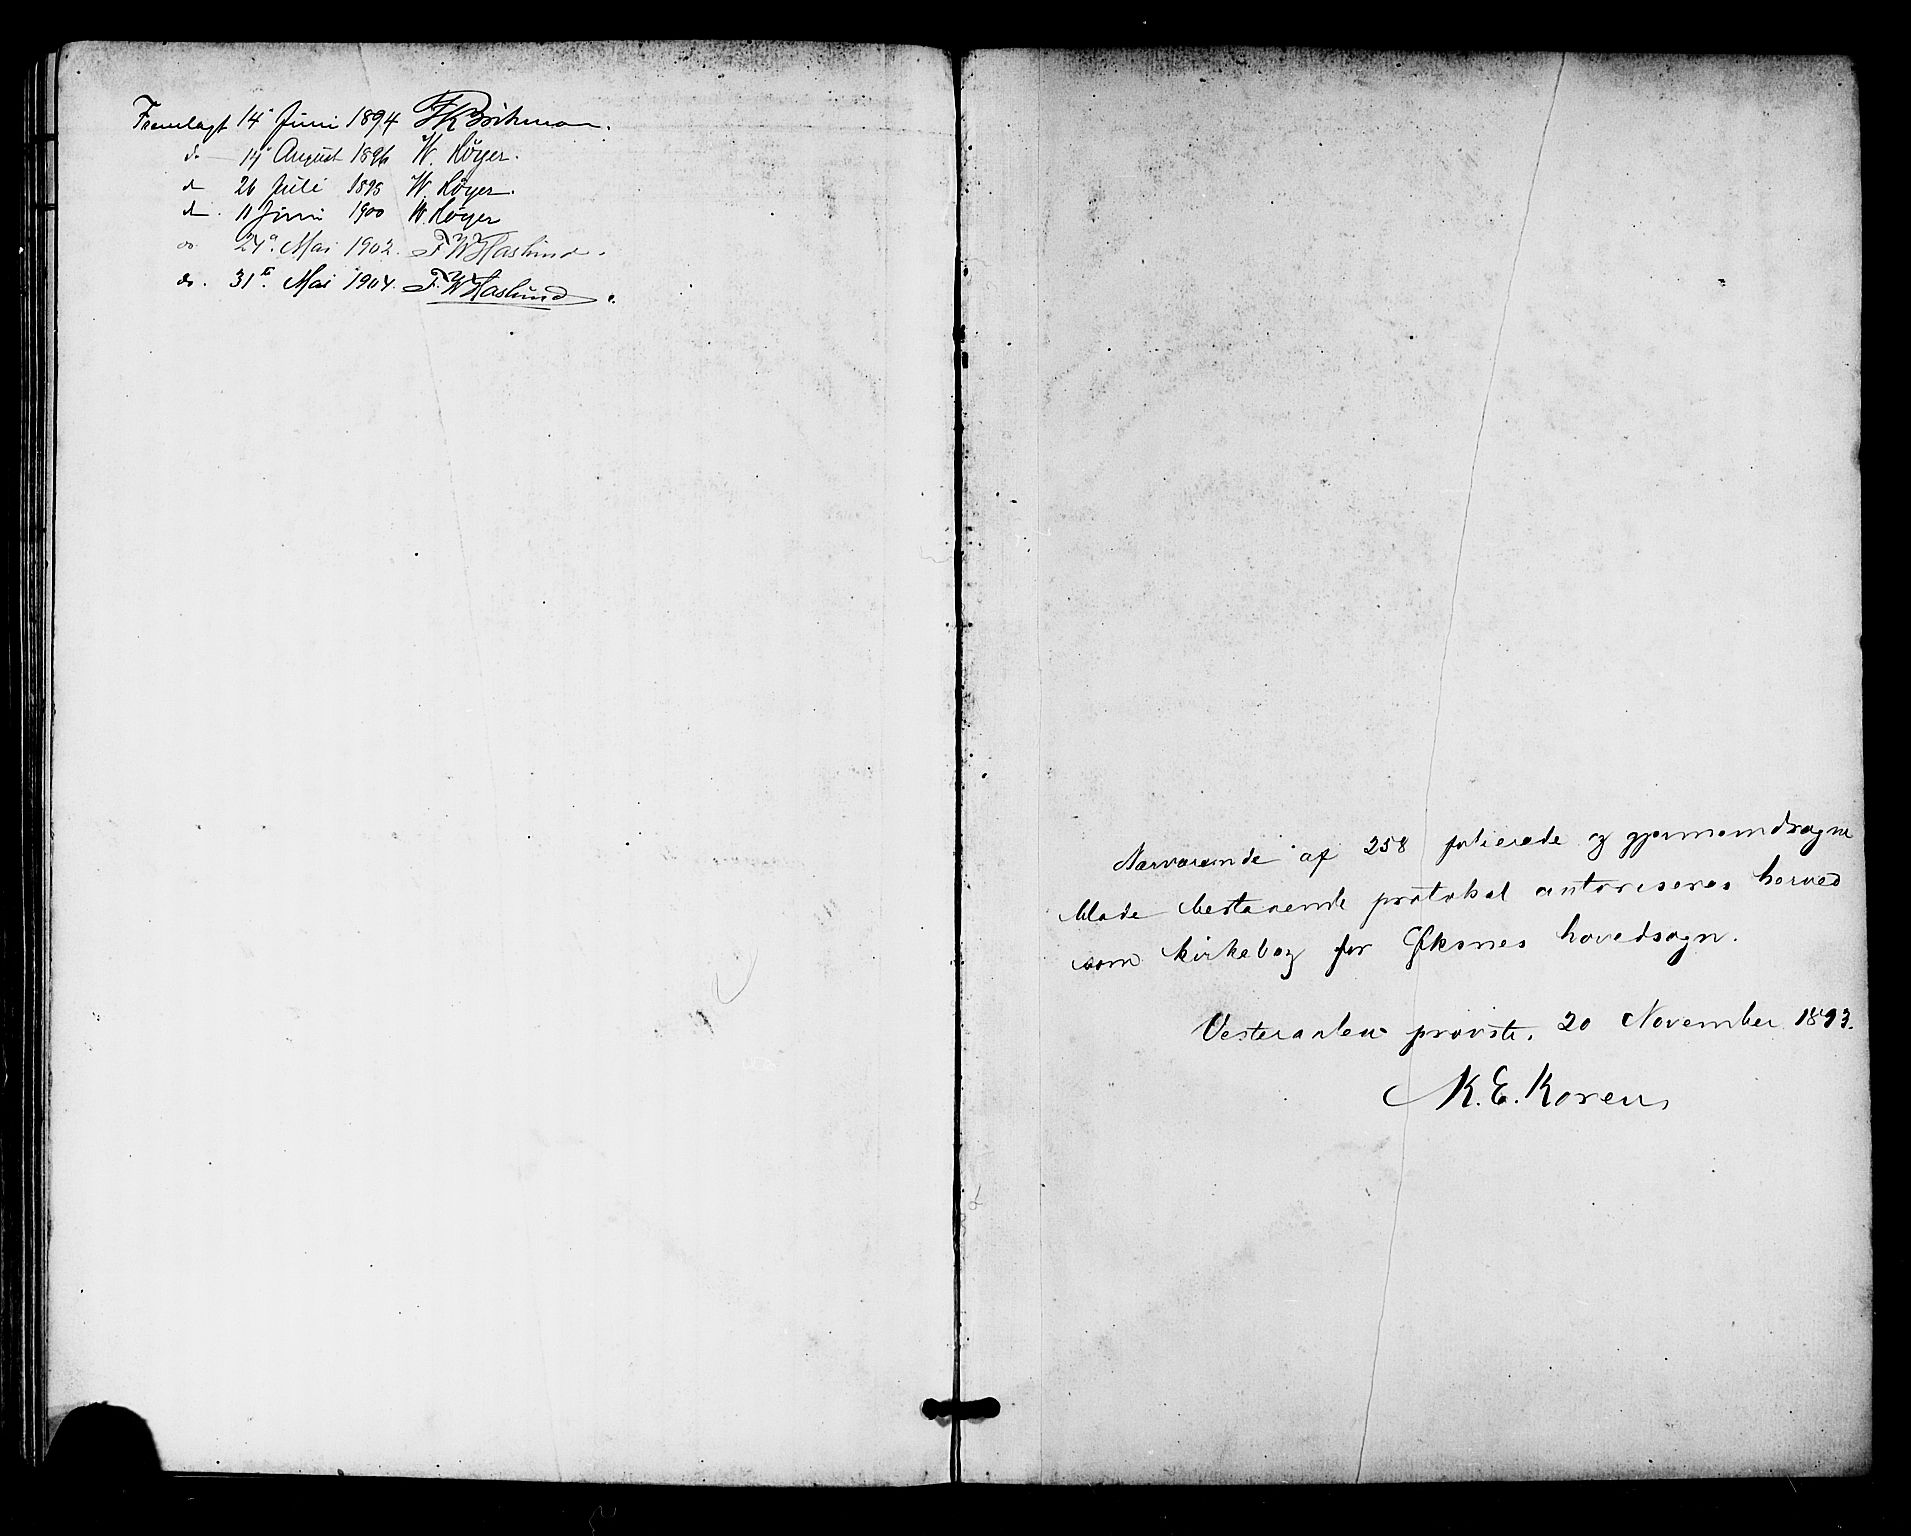 Fremlagt 14 Juni 1894
do 14 August 1896 W. Høyer.
do 26 Juli 1898 W. Høyer.
do. 11 Juni 1900 W. Høyer
do. 24de Mai 1902. F. W. Haslund.
do. 31te Mai 1904. F. W. Haslund.
Nærværende af 258 folierede og gjennemdragne
blade bestaaende protokol autoriseres herved
som kirkebog for Øksnes hovedsogn.
Vesteraalens provsti. 20 November 1893.
M. E. Koren